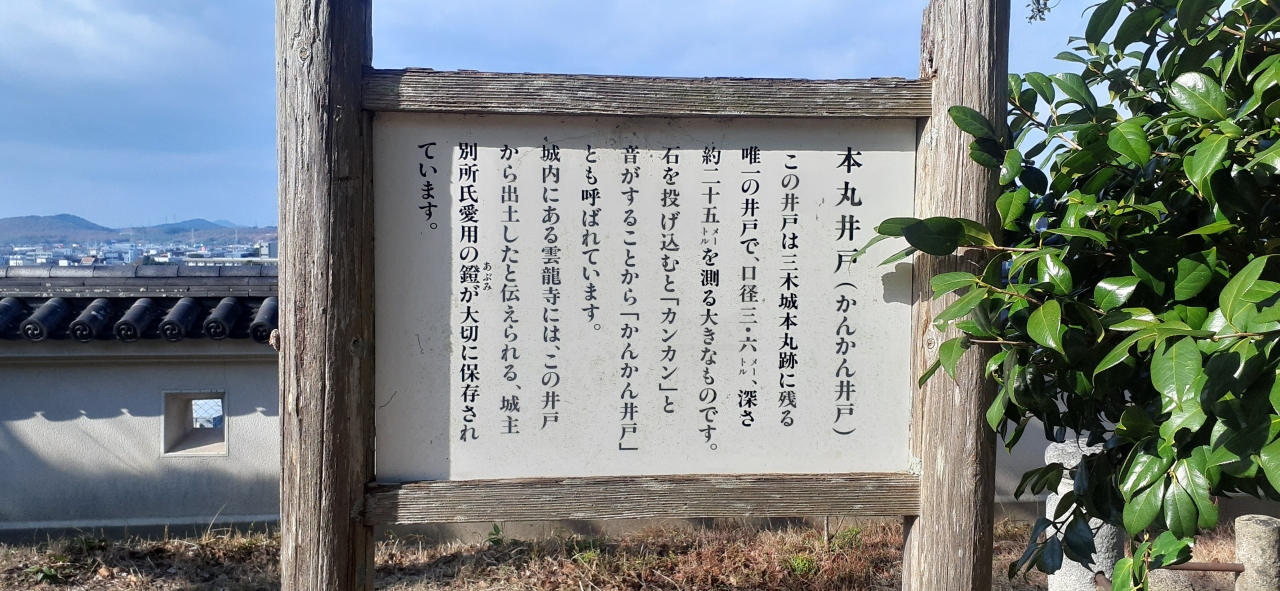 本丸井戸(かんかん井戸)
この井戸は三木城本丸跡に残る
唯一の井戸で、口径三・六メートル、深さ
約二十五メートルを測る大きなものです。
石を投げ込むと「カンカン」と
音がすることから「かんかん井戸」
とも呼ばれています。
城内にある雲龍寺には、この井戸
から出土したと伝えられる、城主
別所氏愛用の鐙あぶみが大切に保存され
ています。